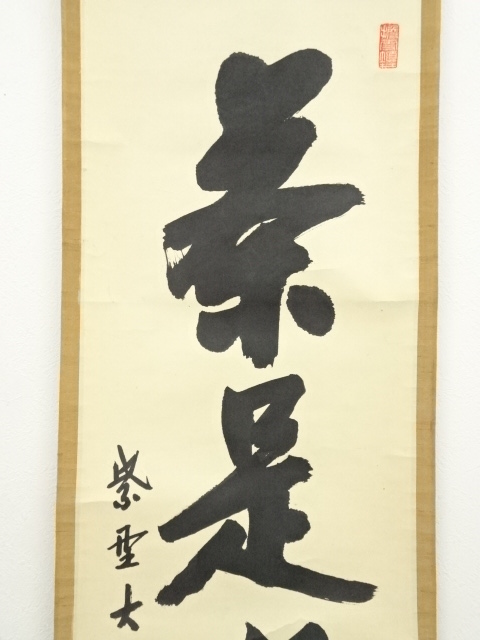 茶是
紫野大